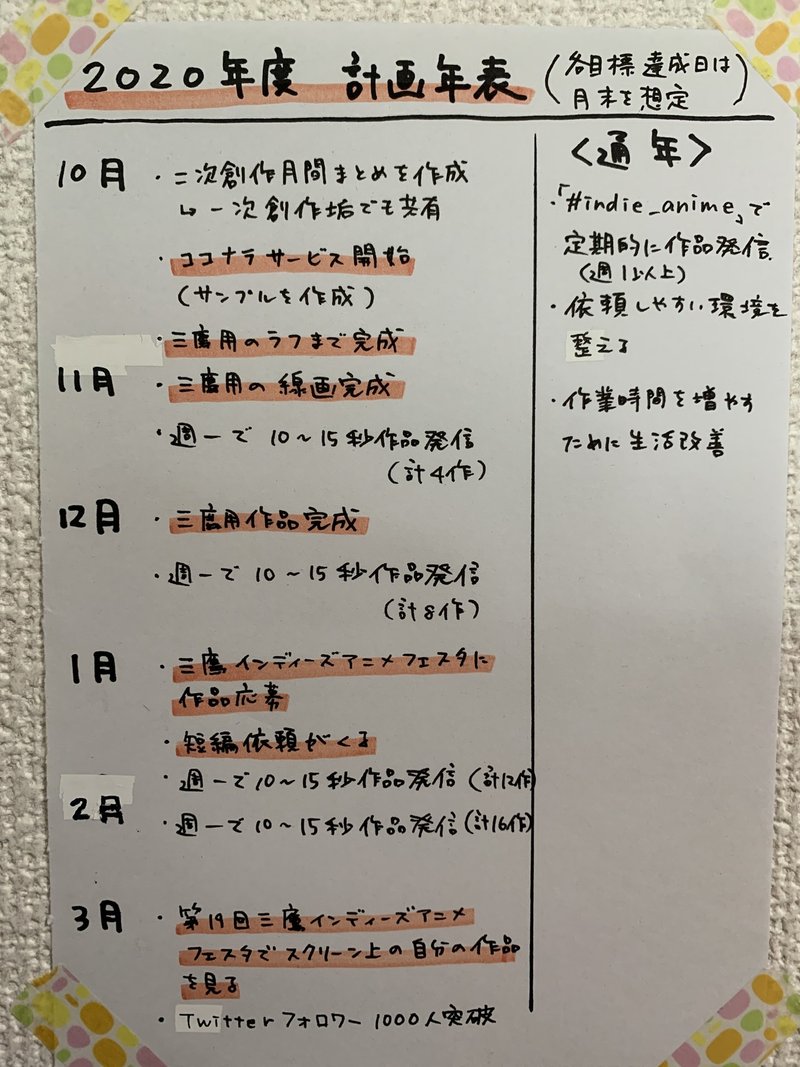 2020年度 計画年表
(各目標達成日は
月末を想定)
10月
・二次創作月間まとめを作成
↳一次創作垢でも共有
・ココナラサービス開始
(サンプルを作成)
・三鷹用のラフまで完成
11月
・三鷹用の線画完成
・週一で10～15秒作品発信
(計4作)
12月
・三鷹用作品完成
・週一で10～15秒作品発信
(計8作)
1月
・三鷹インディーズアニメフェスタに
作品応募
・短編依頼がくる
・週一で10～15秒作品発信(計12作)
2月
・週一で10～15秒作品発信(計16作)
3月
・第19回三鷹インディーズアニメ
フェスタでスクリーン上の自分の作品
を見る
・Twitterフォロワー1000人突破
〈通年〉
・「#indie_anime」で
定期的に作品発信
(週1以上)
・依頼しやすい環境を
整える
・作業時間を増やす
ために生活改善